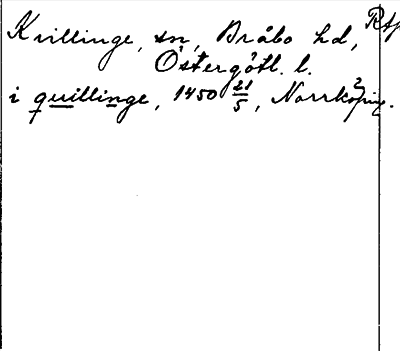 Kvillinge, sn, Bråbo hd,
Östergötl. l.
i quillinge, 1450 21/5, Norrköping.